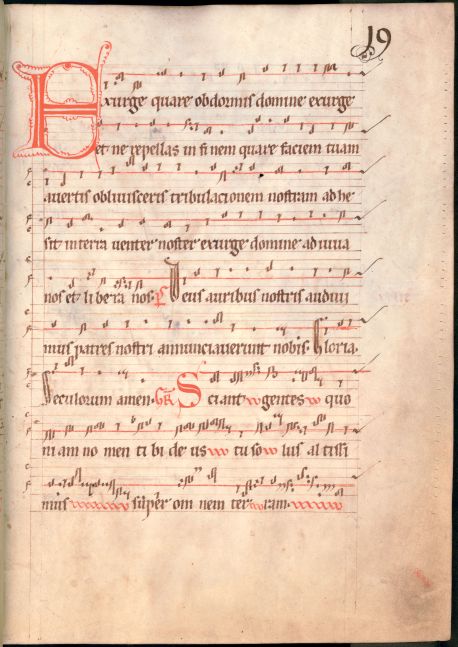 19
Exurge quare obdormis domine exurge
et ne repellas in finem quare faciem tuam
avertis oblivisceris tribulacionem nostram adhe
sit in terra venter noster exurge domine adiuva
nos et li bera nos. Ps Deus auribus nostris audivi
mus patres nostri annunciaverunt nobis. Gloria.
Seculorum amen. GR Sciant gentes quo
ni am no men ti bi de us tu so lus al tissi
mus super om nem ter ram.